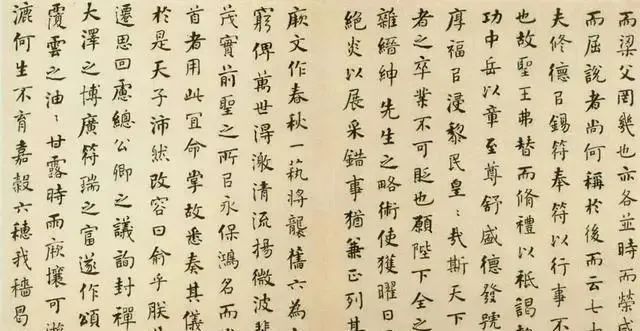 而梁父罔幾也亦各並時而榮咸
而屈說者尚何稱於後而云七十
夫修德㠯錫符奉符以行事不
也故聖王弗替而脩禮以祗謁
功中岳以章至尊舒盛德發號
厚福㠯浸黎民皇〻哉斯天下
者之卒業不可貶也願陛下全之
雜縉紳先生之略術使獲曜日
絕炎以展采錯事猶兼正列其
厥文作春秋一藝將襲舊六為
窮俾萬世得激清流揚微波蜚
茂實前聖之所㠯永保鴻名而
首者用此宜命掌故悉奏其儀
於是天子沛然改容曰俞乎朕
遷思回慮總公卿之議詢封禪
大澤之博廣符瑞之富遂作頌
覆雲之油〻甘露時雨厥壤可游
漉何生不育嘉穀六穗我穡曷